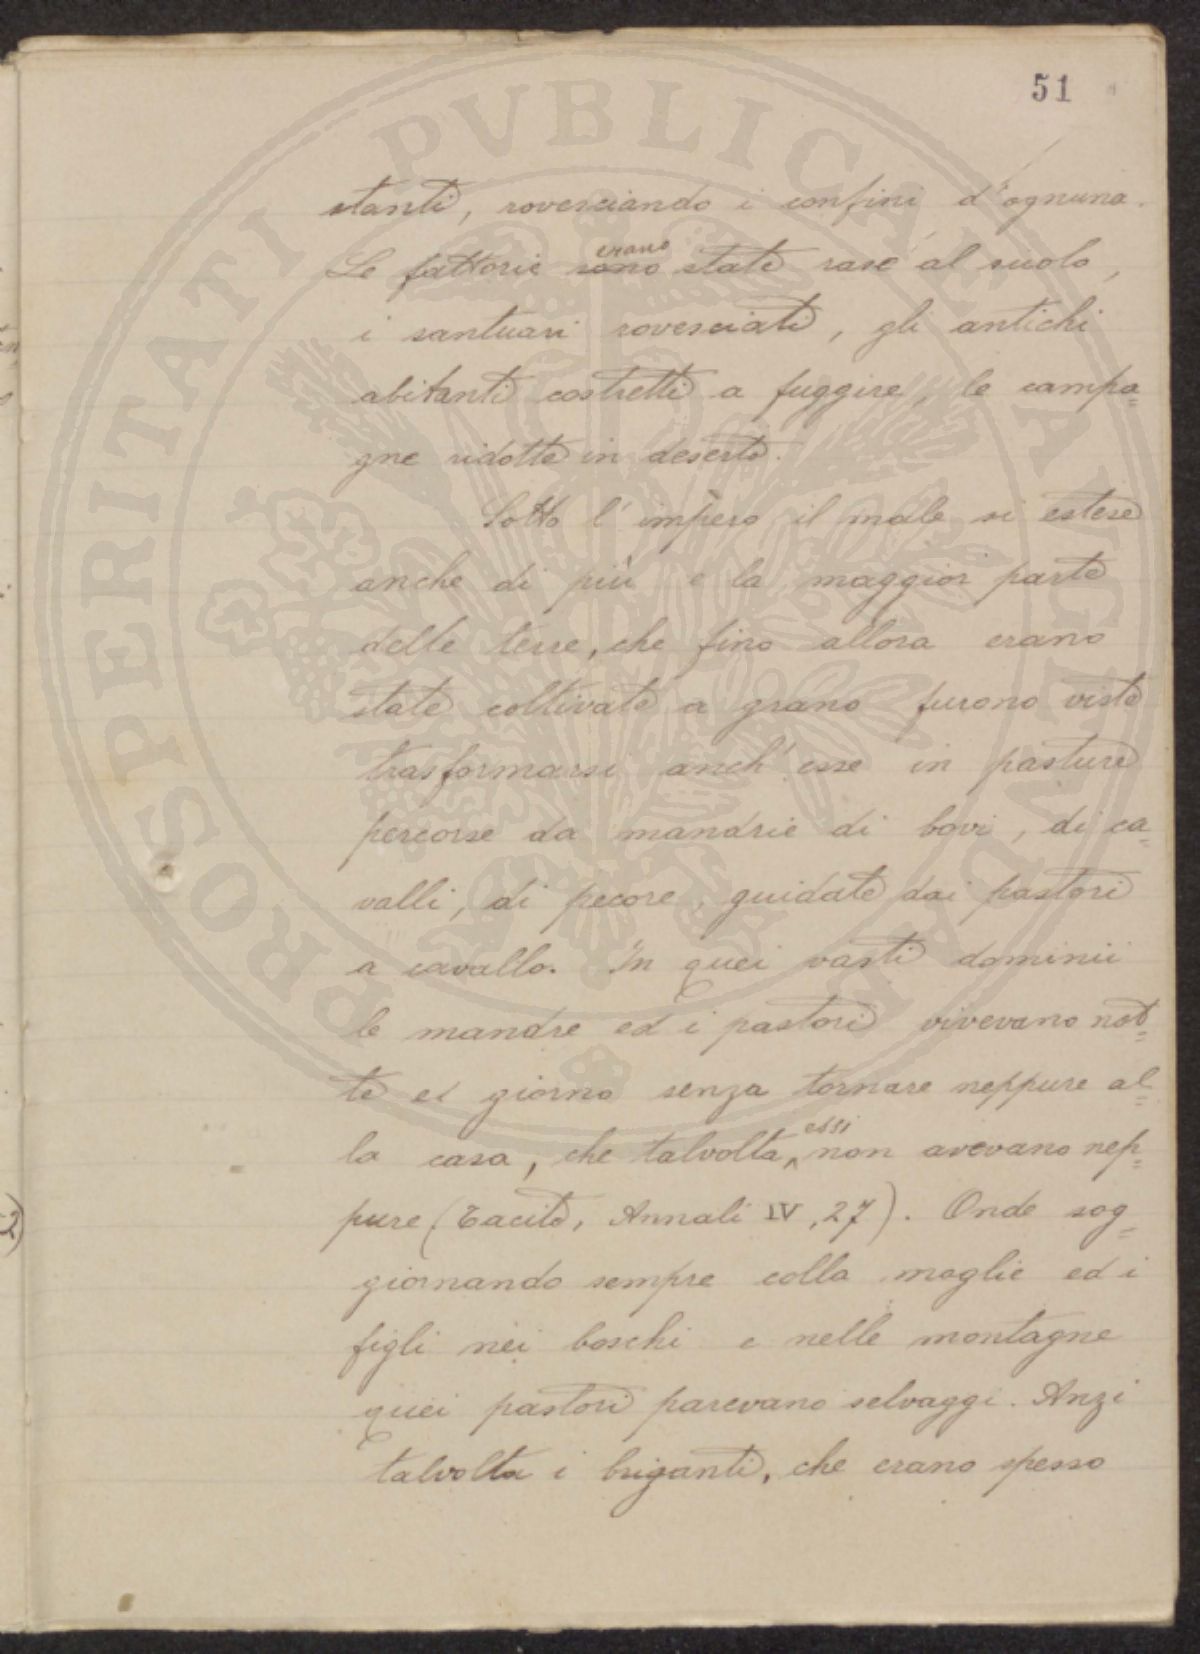 51
stanti, rovesciando i confini d'ognuna.
Le fattorie sono erano state rase al suolo,
i santuari rovesciati, gli antichi
abitanti costretti a fuggire, le campa=
gne ridotte in deserto.
Sotto l'impero il male si estese
anche di più e la maggior parte
delle terre, che fino allora erano
state coltivate a grano furono viste
trasformarsi anch'esse in pasture
percorse da mandrie di bovi, di ca=
valli, di pecore, guidate dai pastori
a cavallo. In quei vasti dominii
le mandre ed i pastori vivevano not=
te e giorno senza tornare neppure al=
la casa, che talvolta essi non avevano nep=
pure (Tacito, Annali IV, 27). Onde sog=
giornando sempre colla moglie ed i
figli nei boschi e nelle montagne
quei pastori parevano selvaggi. Anzi
talvolta i briganti, che erano spesso
2)
PROSPERITATI PVBLICAE AVGENDAE